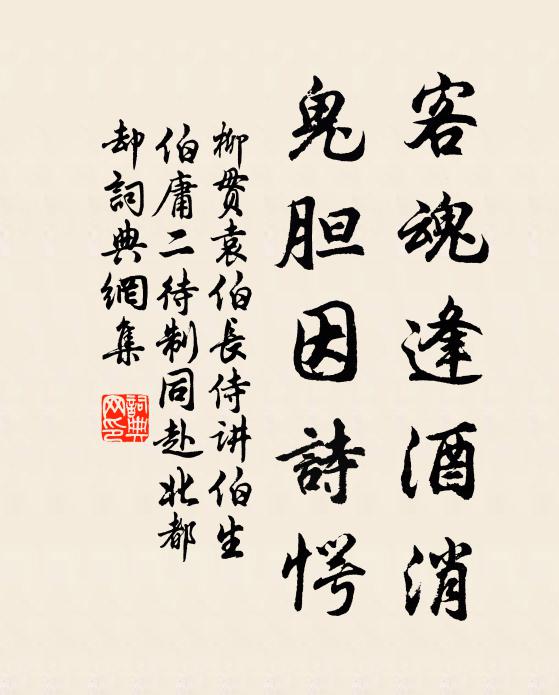 客魂逢酒消
鬼胆因詩愕
柳贯袁伯長侍讲伯生
伯庸二待制同赴北都
却詞典網集
詞典
网印